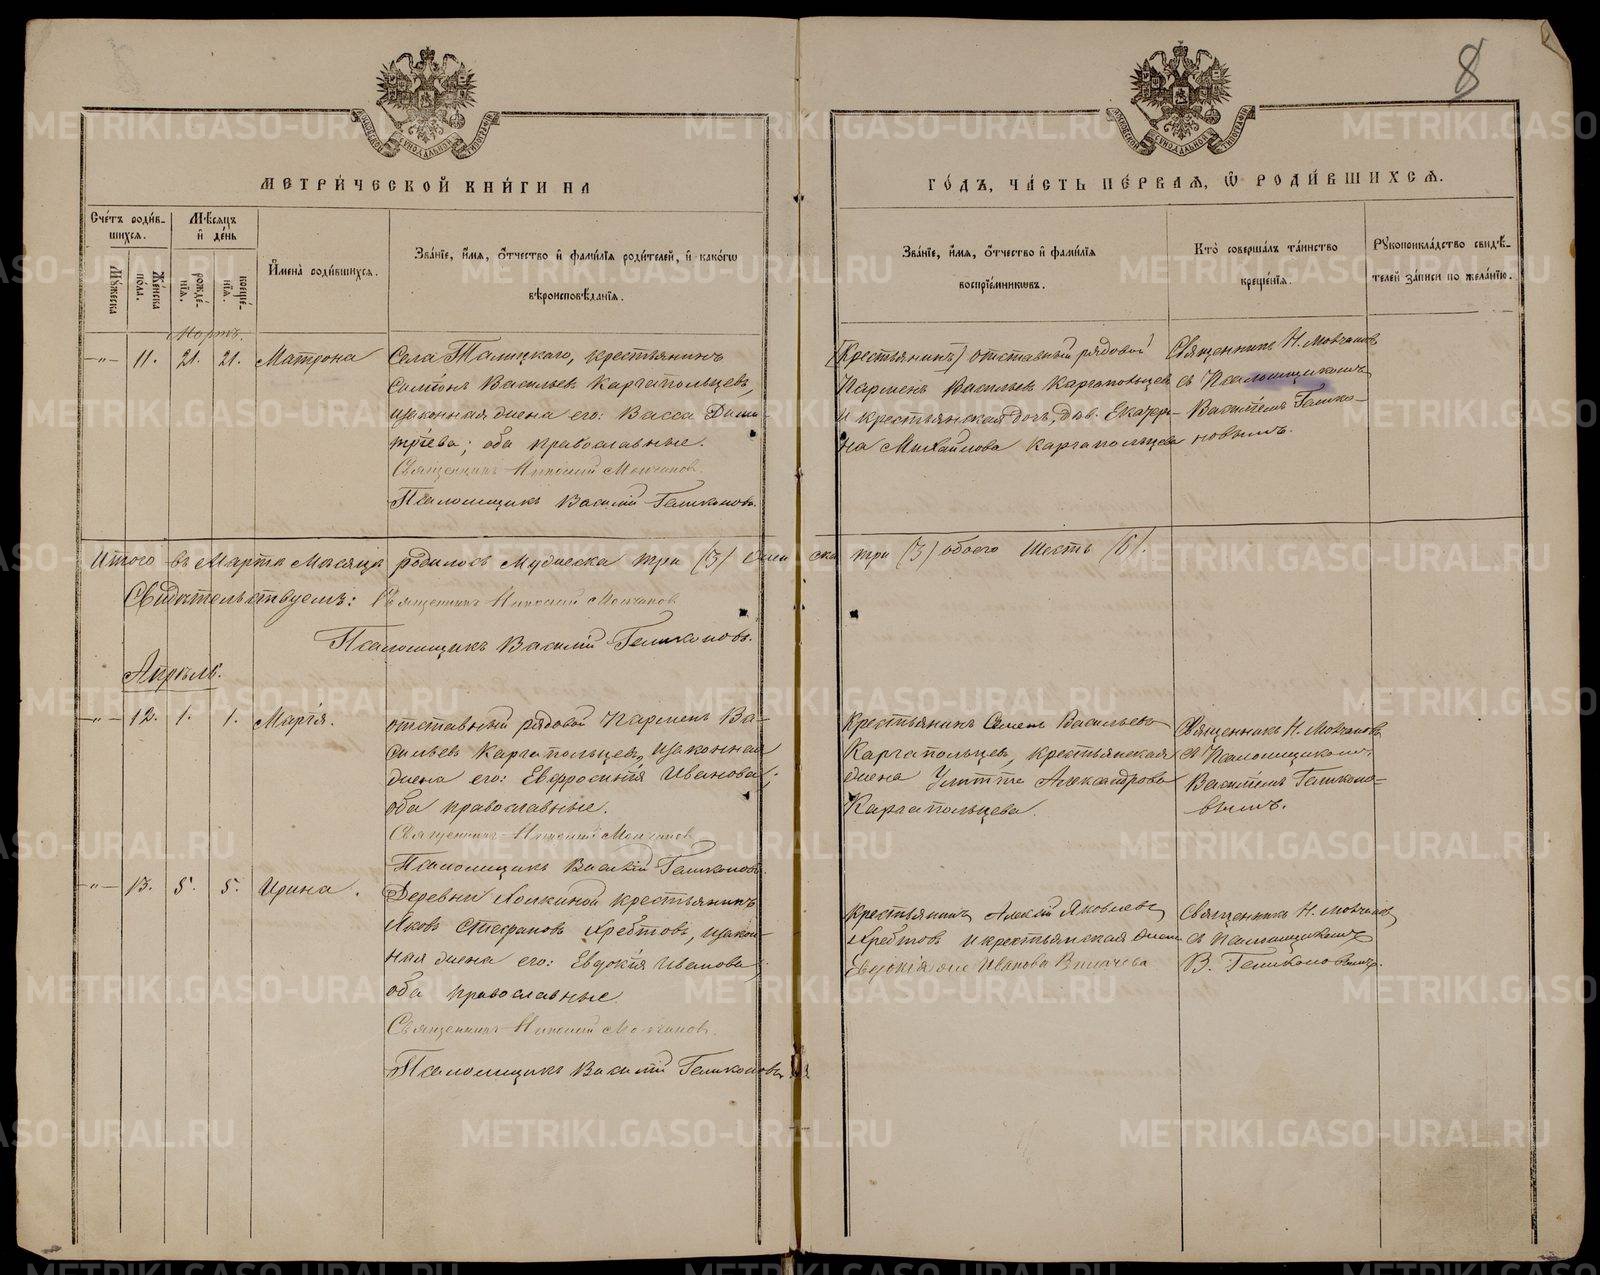 8
МОСКОВСКОЙ СѴНОДАЛЬНОЙ ТИПОГРАФІИ
МОСКОВСКОЙ СѴНОДАЛЬНОЙ ТИПОГРАФІИ
МЕТРИ́ЧЕСКОЙ КНИ́ГИ НА
ГО́ДЪ, ЧА́СТЬ ПЕ́РВАЯ, Ѿ РОДИ́ВШИХСЯ.
Сче́тъ роди́в-
шихся.
Мѣсяцъ
и де́нь
Мꙋжеска
Же́нска
по́ла.
рожде́-
нїя.
креще́-
нїя.
И҆мена̀ роди́вшихся.
Зва́нїе, и҆́мя, ѻ҆́тчество и҆ фами́лїя роди́телей, и҆ како́гѡ
вѣроисповѣ́данїя.
Зва́нїе, и҆́мя, ѻ҆́тчество и҆ фами́лїя
воспрїе́мникѡвъ.
Кто̀ соверша́лъ та́инство
креще́нїя.
Рꙋкоприкла́дство свидѣ́-
телей за́писи по жела́нїю.
Мартъ.
-„- 11. 21. 21. Матрона
Села Талицкаго, крестьянинъ
Васильевъ Каргапольцевъ,
и законная жена его: Васса Дими-
тріева; оба православные.
Священникъ Николай Молчановъ.
Псаломщикъ Василій
(Крестьянинъ) отставный рядовой
Парменъ Васильевъ Каргапольцевъ
и крестьянская дочь, дѣв. Екатери-
на Михайлова Каргапольцева
Священникъ Н. Молчановъ
съ Псаломщикомъ
Василіемъ
новымъ.
Итого въ Мартѣ Мѣсяцѣ родилось Мужеска три (3) Жен ска три (3) обоего Шесть (6).
Свидѣтельствуемъ: Священникъ Николай Молчановъ
Псаломщикъ Василій
Апрѣль.
-„- 12. 1. 1. Марія.
отставный рядовой Парменъ Ва-
сильевъ Каргапольцевъ, и законная
жена его: Евфросинія Иванова;
оба православные.
Священникъ Николай Молчановъ
Псаломщикъ Василій
Крестьянинъ Васильевъ
Каргапольцевъ, крестьянская
жена Александрова
Каргапольцева.
Священникъ Н. Молчановъ
съ Псаломщикомъ
Василіемъ
вымъ.
-„- 13. 5. 5. Ирина.
Деревни крестьянинъ
Яковъ Стефановъ Хребтовъ, и закон-
ная жена его: Евдокія Иванова;
оба православные.
Священникъ Николай Молчановъ.
Псаломщикъ Василій
Крестьянинъ Алексій Яковлевъ
Хребтовъ и крестьянская жена
Евдокія Иванова
Священникъ Н. Молчановъ
съ Псаломщикомъ
В.
METRIKI.GASO-URAL.RU